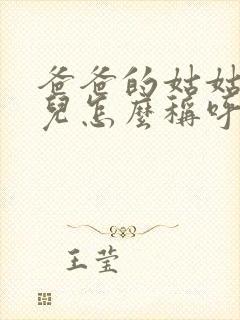 爸爸的姑姑
兒怎麼稱呼
王莹